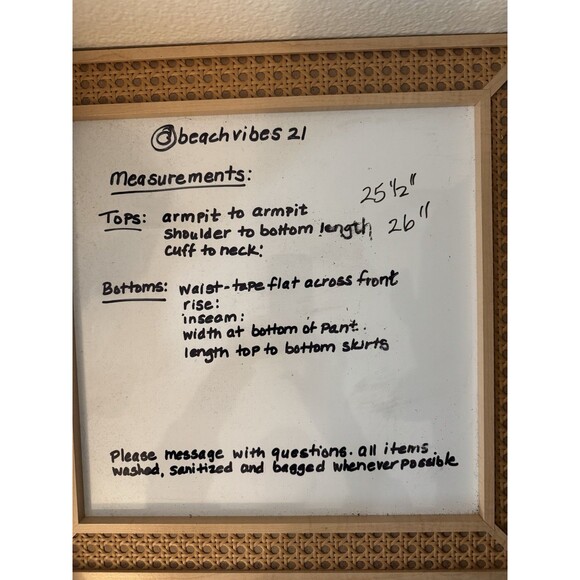 @beachvibes 21
Measurements:
Tops: armpit to armpit 25 1/2"
shoulder to bottom length 26"
cuff to neck:
Bottoms: waist-tape flat across front
rise:
inseam:
width at bottom of pant.
length top to bottom skirts
Please message with questions. all items.
washed, sanitized and bagged whenever possible